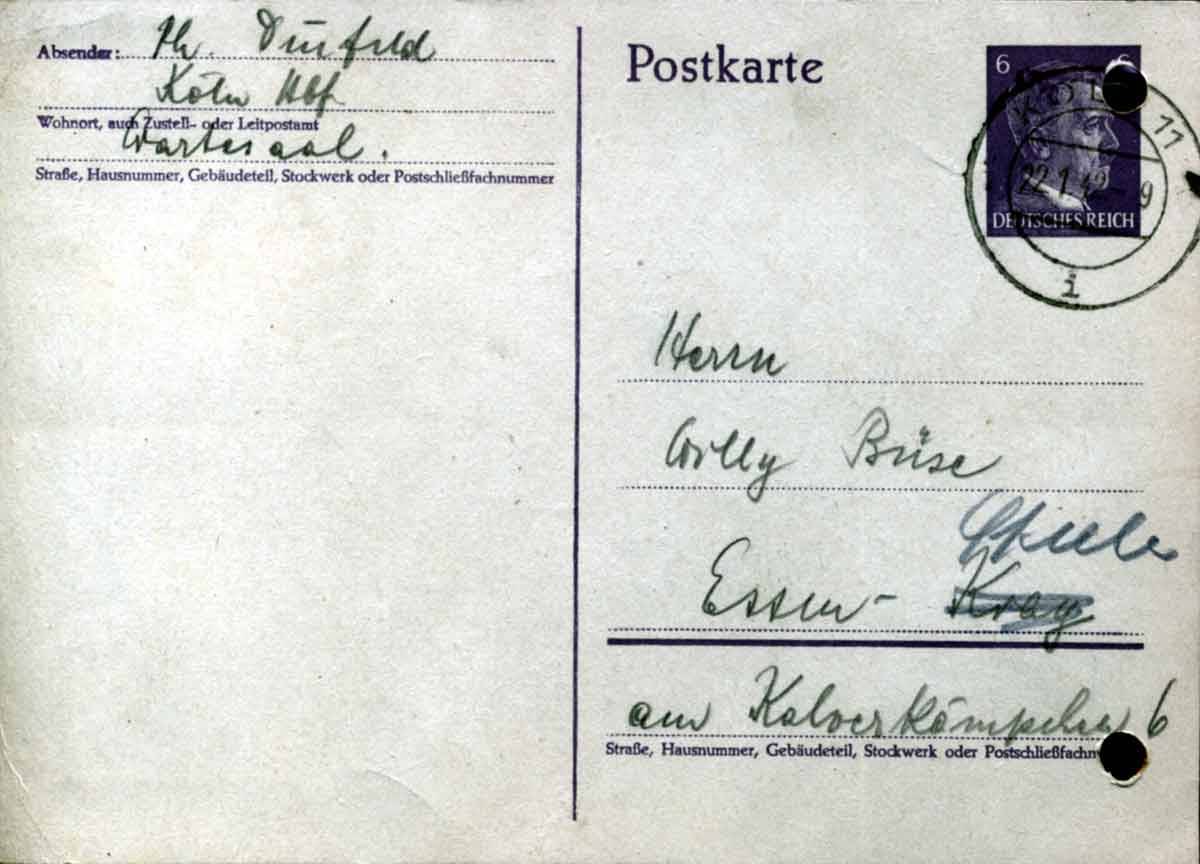 Absender: Th. Dünfeld
Köln Hbf
Wohnort, auch Zustell- oder Leitpostamt
Wartesaal.
Straße, Hausnummer, Gebäudeteil, Stockwerk oder Postschließfachnummer
Postkarte
6 6
KÖLN 11
22.1.42 9
DEUTSCHES REICH
i
Herrn
Willy Büse
Essen- Kray
am Kalverkämpchen 6
Straße, Hausnummer, Gebäudeteil, Stockwerk oder Postschließfachn